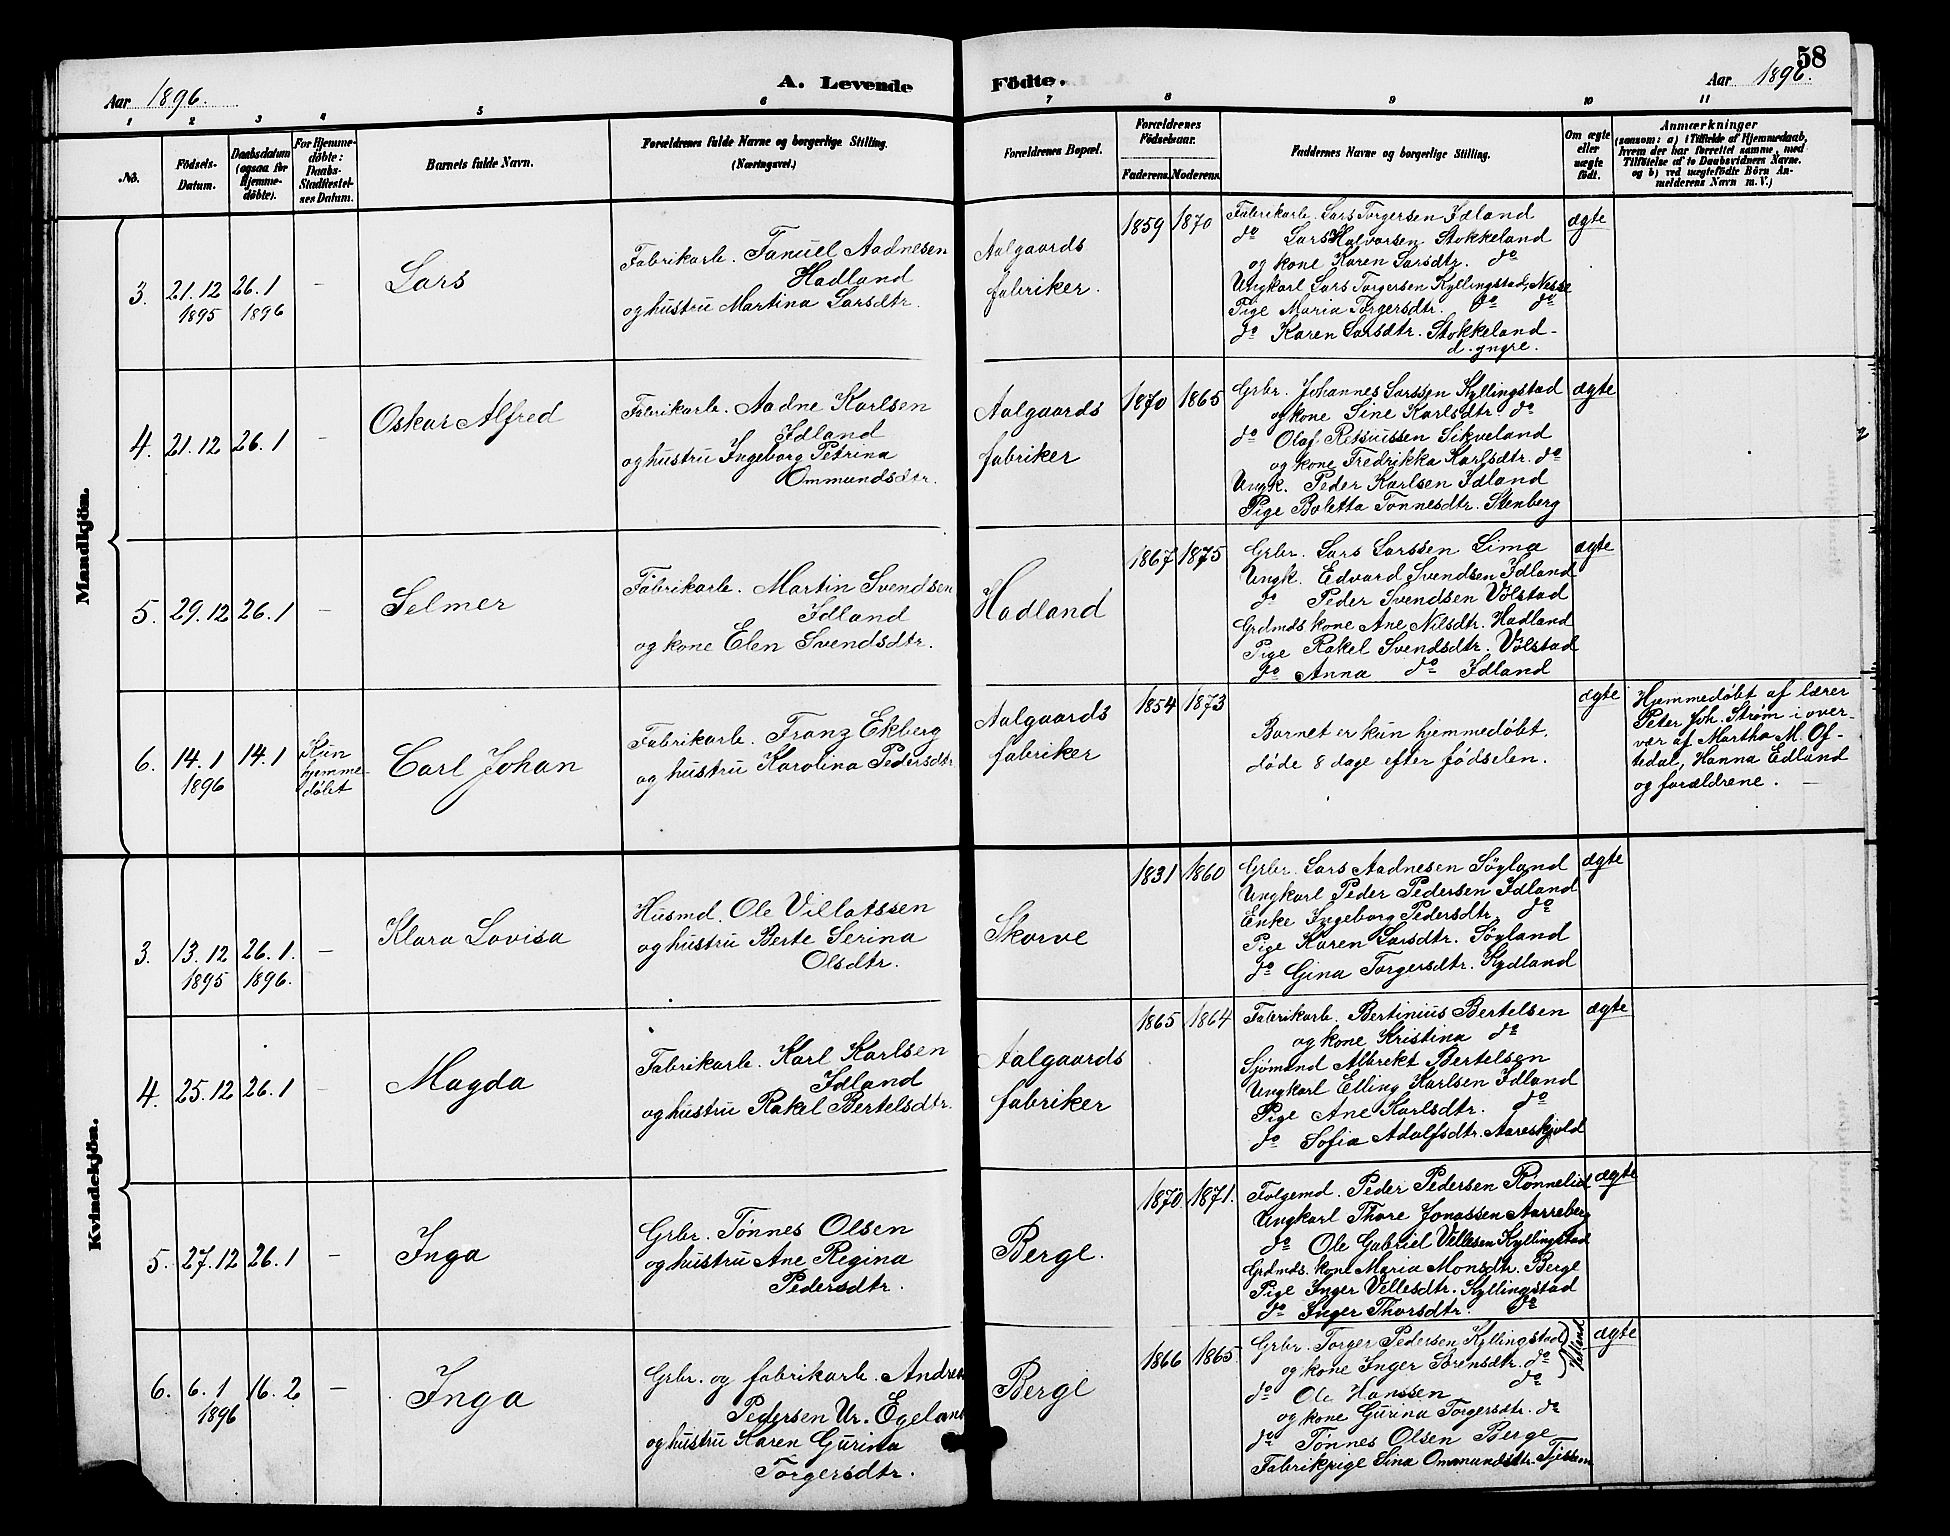 58
Aar 1896.
A. Levende Födte.
Aar 1896.
1 2 3 4 5 6 7 8 9 10 11
No.
Födsels-
Datum.
Daabsdatum
(ogsaa for
Hjemme-
döbte).
For Hjemme-
döbte:
Daabs-
Stadfæstel-
ses Datum.
Barnets fulde Navn.
Forældrenes fulde Navne og borgerlige Stilling.
(Næringsvei.)
Forældrenes Bopæl.
Forældrenes
Födselsaar.
Faderens. Moderens.
Faddernes Navne og borgerlige Stilling.
Om ægte
eller
uægte
födt.
Anmærkninger
(saasom: a) i Tilfælde af Hjemmedaab,
hvem der har forrettet samme, med
Tilföielse af to Daabsvidners Navne.
og b) ved uægtefödte Börn An-
melderens Navn m. V.)
Mandkjön.
3.
21.12
1895
26.1
1896
-
Lars
Fabrikarb. Tanuel Aadnesen
Hadland
og hustru Martina Larsdtr.
Aalgaards
fabriker.
1859
1870
Fabrikarb. Lars Torgersen Idland
do Lars Halvorsen Stokkeland
og kone Karen Larsdtr. do
Ungkarl Lars Torgersen Kyllingstad, Nesse
Pige Maria Torgersdtr. do do
do Karen Larsdtr. Stokkeland
d. yngre.
ægte
4.
21.12
26.1
-
Oskar Alfred
Fabrikarb. Aadne Karlsen
Idland
og hustru Ingeborg Petrina
Ommundsdtr.
Aalgaards
fabriker
1870
1865
Grbr. Johannes Larssen Kyllingstad
og kone Sine Karlsdtr. do
do Olaf Rasmussen Sikveland
og kone Fredrikka Karlsdtr. do
Ungk. Peder Karlsen Idland
Pige Boletta Tonnesdtr. Stenberg
ægte
5.
29.12
26.1
-
Selmer
Fabrikarb. Martin Svendsen
Idland
og kone Elen Svendsdtr.
Hadland
1867
1875
Grbr. Lars Larssen Lima
Ungk. Edvard Svendsen Idland
do Peder Svendsen Vølstad
Grdmds kone Ane Nilsdtr. Hadland
Pige Rakel Svendsdtr. Vølstad
do Anna do Idland
ægte
6.
14.1
1896
14.1
Kun
hjemme-
døbt
Carl Johan
Fabrikarb. Franz Ekberg
og hustru Karolina Pedersdtr
Aalgaards
fabriker
1854
1873
Barnet er kun hjemmedøbt.
døde 8 dage efter fødselen.
ægte
Hjemmedøbt af lærer
Peter Joh. Strøm i over-
vær af Martha M. Of-
tedal, Hanna Edland
og forældrene.
Kvindekjön.
3.
13.12
1895
26.1.
1896.
-
Klara Lovisa
Husmd. Ole Villatssen
og hustru Berte Serina
Olsdtr.
Skorve
1831
1860
Grbr. Lars Aadnesen Søyland
Ungkarl Peder Pedersen Idland
Enke Ingeborg Pedersdtr. do
Pige Karen Larsdtr. Søyland
do Gina Torgersdtr. Kydland
ægte
4.
25.12
26.1
-
Magda
Fabrikarb. Karl Karlsen
Idland
og hustru Rakel Bertelsdtr.
Aalgaards
fabriker
1865
1864
Fabrikarb. Bertinius Bertelsen
og kone Kristina do
Sjømand Albrekt Bertelsen
Ungkarl Elling Karlsen Idland
Pige Ane Karlsdtr. do
do Sofia Adolfsdtr. Aareskjold
ægte
5.
27.12
26.1
-
Inga
Grbr. Tønnes Olsen
og hustru Ane Regina
Pedersdtr.
Berge.
1870.
1871.
Folgemd. Peder Pedersen Rønnelid
Ungkarl Thore Jonassen Aarreberg
do Ole Gabriel Villesen Kyllingstad
Grdmds. kone Maria Monsdtr. Berge
Pige Inger Villesdtr. Kyllingstad
do Inger Thorsdtr. do
ægte
6.
6.1
1896
16.2
-
Inga
Grbr. og fabrikarb. Andreas
Pedersen Ur. Egeland
og hustru Karen Gurina
Torgersdtr.
Berge
1866
1865.
Grbr. Torger Pedersen Kyllingstad
og kone Inger Sørensdtr. do
do Ole Hanssen do
og kone Gurina Torgersdtr. do
do Tønnes Olsen Berge
Fabrikpige Sina Ommundsdtr.
ægte